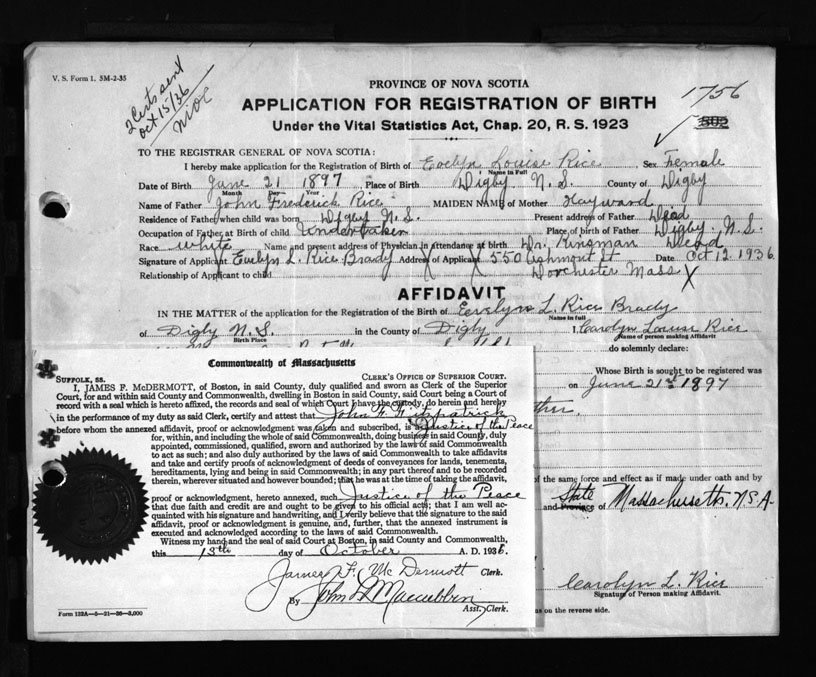 V. S. Form 1. 5M-2-35
2 Certs sent
Oct 15/36
PROVINCE OF NOVA SCOTIA
1756
APPLICATION FOR REGISTRATION OF BIRTH
Under the Vital Statistics Act, Chap. 20, R. S. 1923
502
TO THE REGISTRAR GENERAL OF NOVA SCOTIA:
I hereby make application for the Registration of Birth of Evelyn Louise Rice Sex Female
Name in Full
Date of Birth June 21 1897 Place of Birth Digby N. S. County of Digby
Month Day Year
Name of Father John Frederick Rice MAIDEN NAME of Mother Hayward
Residence of Father when child was born Digby N. S. Present address of Father Dead
Occupation of Father at Birth of child Undertaker Place of birth of Father Digby. N. S.
Race white Name and present address of Physician in Attendance at birth Dr. Kinsman Dead
Signature of Applicant Evelyn L. Rice Brady Address of Applicant 550 Ashmont St Date Oct 12 1936
Relationship of Applicant to child Dorchester Mass X
AFFIDAVIT
IN THE MATTER of the application for the Registration of the Birth of Evelyn L. Rice Brady
Name in full
of Digby N. S. in the County of Digby I, Carolyn Louise Rice
Birth Place Name of person making Affidavit
do solemnly declare:
Whose Birth is sought to be registered was
on June 21st 1897
of the same force and effect as if made under oath and by
and Province State of Massachusetts. U.S.A.
Carolyn L. Rice
Signature of Person making Affidavit.
as on the reverse side.
Commonwealth of Massachusetts
SUFFOLK, ss. CLERK'S OFFICE OF SUPERIOR COURT.
I, JAMES F. McDERMOTT, of Boston, in said County, duly qualified and sworn as Clerk of the Superior
Court, for and within said County and Commonwealth, dwelling in Boston in said County, said Court being a Court of
record with a seal which is hereto affixed, the records and seal of which Court I have the custody, do herein and hereby
in the performance of my duty as said Clerk, certify and attest that John F. Fitzpatrick
before whom the annexed affidavit, proof or acknowledgment was taken and subscribed, is a Justice of the Peace
for, within, and including the whole of said Commonwealth, doing business in said County, duly
appointed, commissioned, qualified, sworn and authorized by the laws of said Commonwealth
to act as such; and also duly authorized by the laws of said Commonwealth to take affidavits
and take and certify proofs of acknowledgment of deeds of conveyances for lands, tenements,
hereditaments, lying and being in said Commonwealth; in any part thereof and to be recorded
therein, wherever situated and however bounded; that he was at the time of taking the affidavit,
proof or acknowledgment, hereto annexed, such Justice of the Peace
that due faith and credit are and ought to be given to his official acts; that I am well ac-
quainted with his signature and handwriting, and I verily believe that the signature to the said
affidavit, proof or acknowledgment is genuine, and, further, that the annexed instrument is
executed and acknowledged according to the laws of said Commonwealth.
Witness my hand and the seal of said Court at Boston, in said County and Commonwealth,
this 13th day of October A. D. 1936.
James F. McDermott Clerk.
By John H. Maccubbin
Asst. Clerk.
Form 132A—5—21—36—3,000